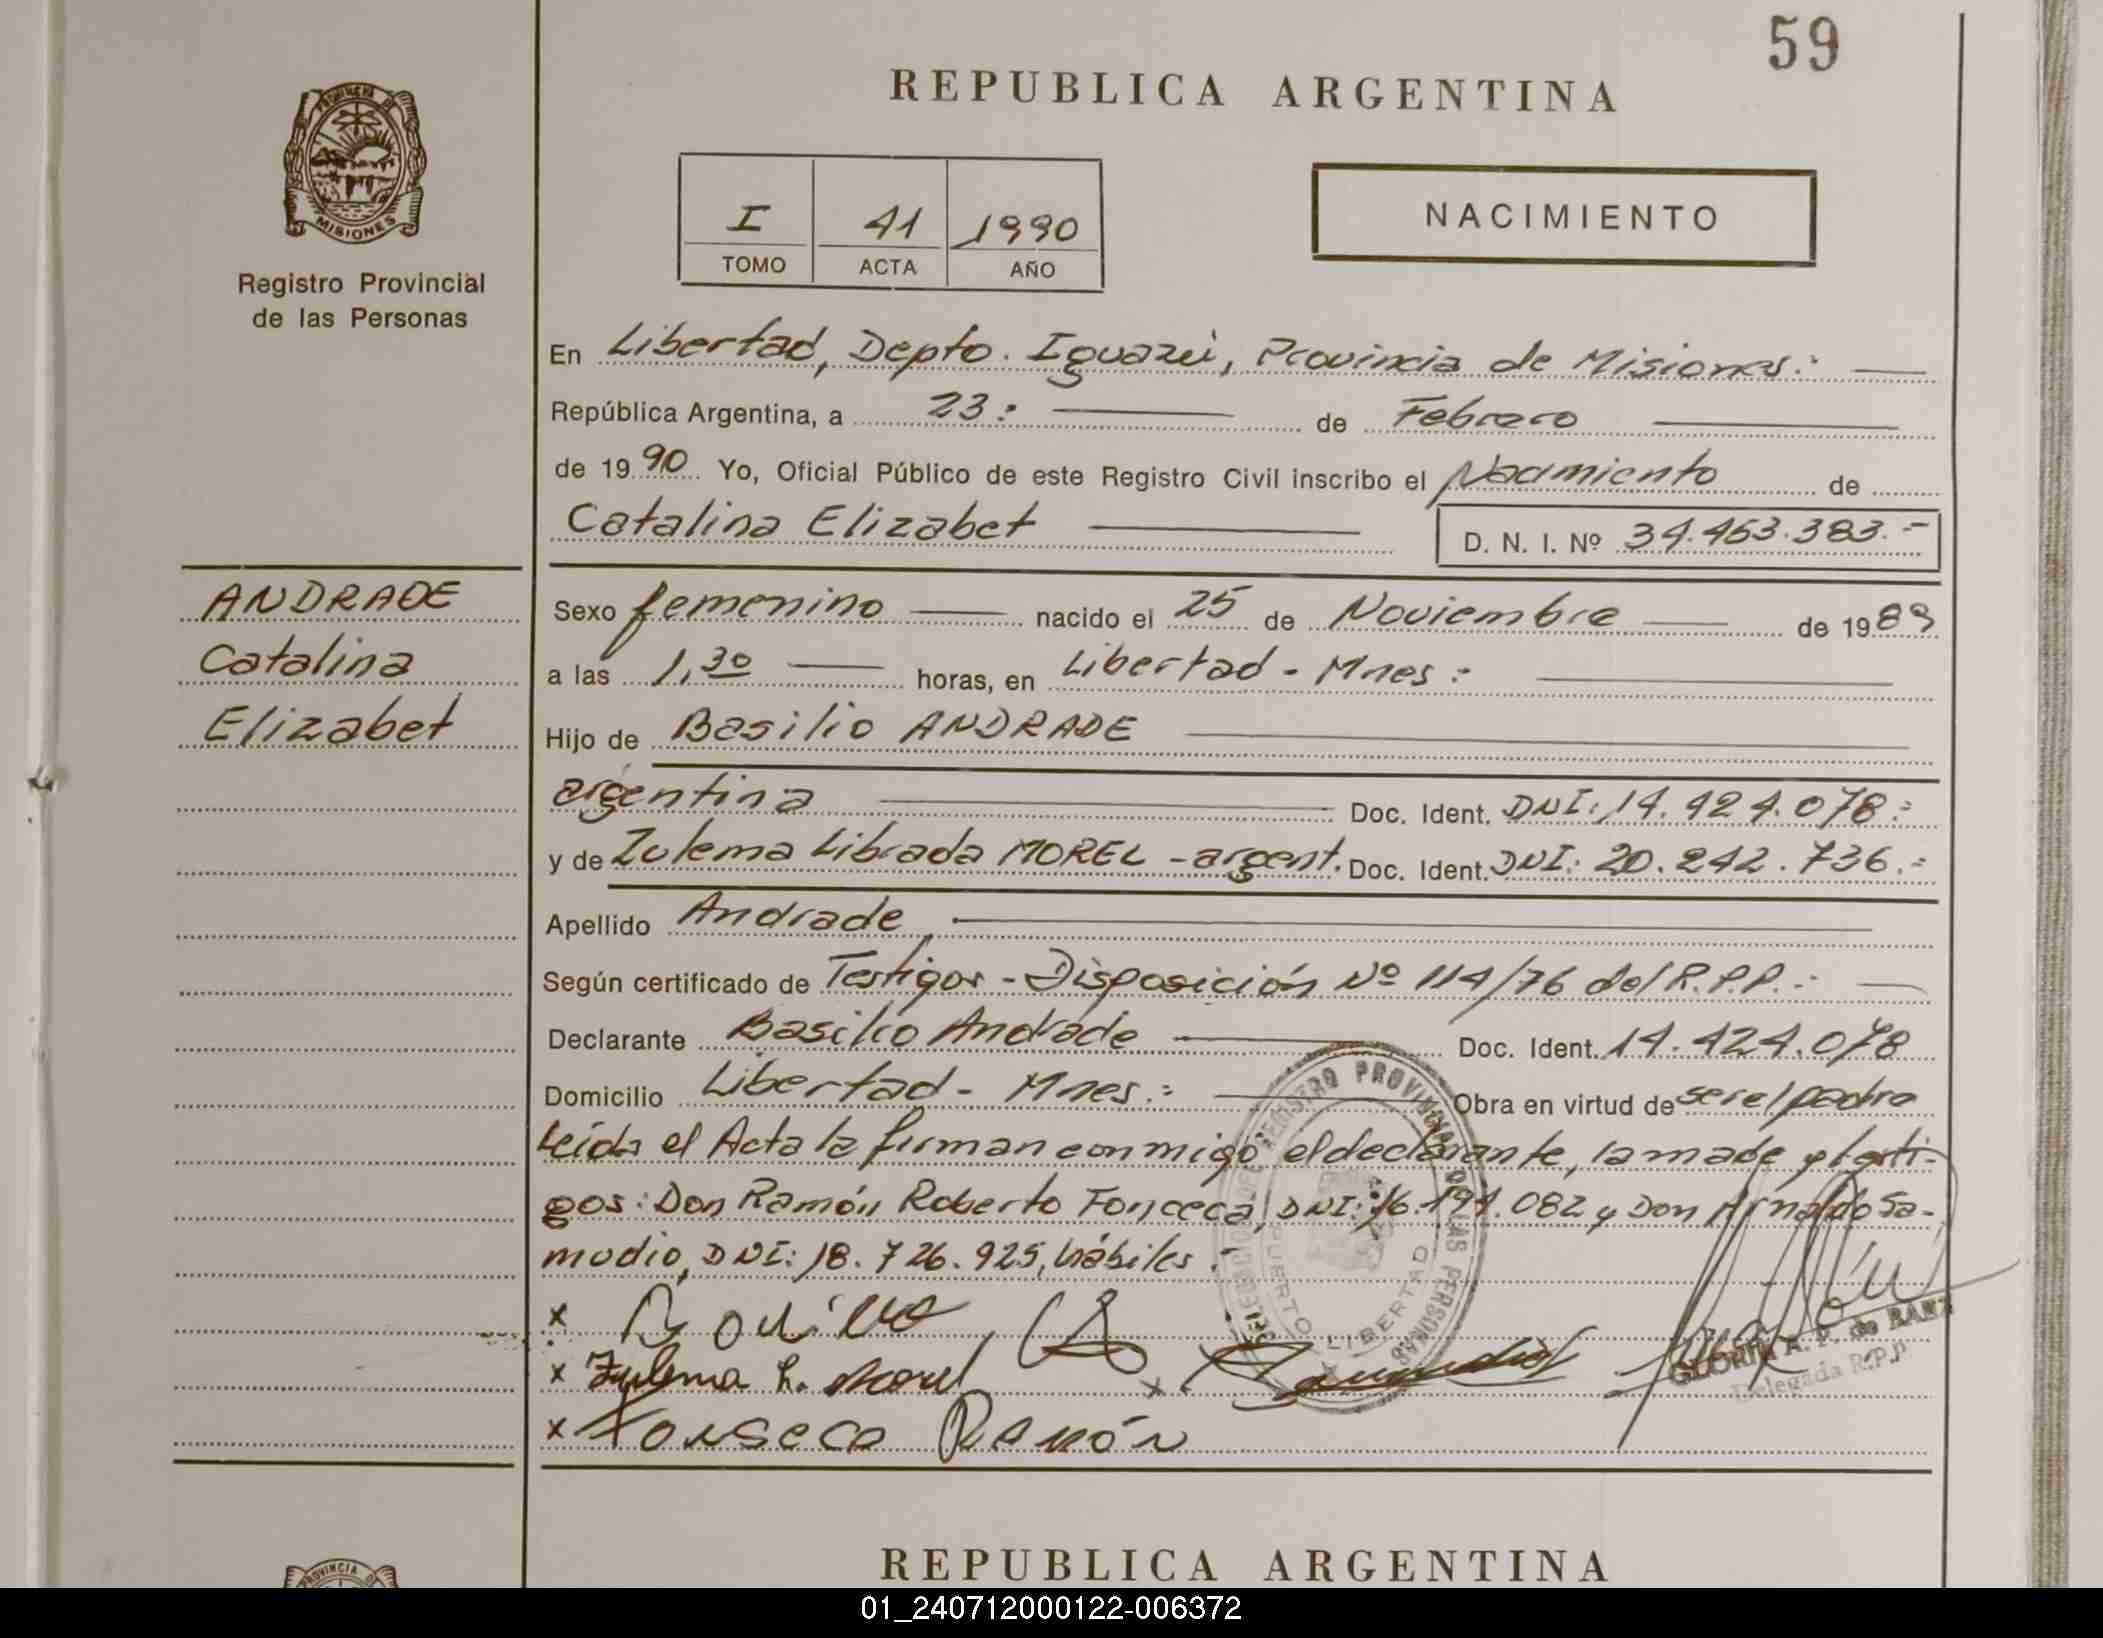 59
REPUBLICA ARGENTINA
PROVINCIA DE
MISIONES
Registro Provincial
de las Personas
I 41 1990
TOMO ACTA AÑO
NACIMIENTO
En Libertad, Depto. Iguazú, Provincia de Misiones:
República Argentina, a 23: de Febrero
de 1990 Yo, Oficial Público de este Registro Civil inscribo el Nacimiento de
Catalina Elizabet D. N. I. Nº 34.463.383.-
ANDRADE
Catalina
Elizabet
Sexo femenino nacido el 25 de Noviembre de 1989
a las 1,30 horas, en Libertad - Mnes:
Hijo de Basilio ANDRADE
argentina Doc. Ident. DNI: 14.424.078:
y de Zulema Librada MOREL - argent. Doc. Ident. DNI: 20.242.736.=
Apellido Andrade
Según certificado de Testigos - Disposición Nº 114/76 del R.P.P.-
Declarante Basilio Andrade Doc. Ident. 14.424.078
Domicilio Libertad - Mnes: Obra en virtud de ser el padre
Leída el Acta la firman conmigo el declarante, la madre y testi-
gos: Don Ramón Roberto Fonceca, DNI: 16.194.082 y Don Arnaldo Sa-
mudio, DNI: 18.726.925, hábiles.-
REGISTRO PROVINCIAL DE LAS PERSONAS
PUERTO LIBERTAD
x
x Zulema L. Morel x
GLORIA A. P. de
Delegada R.P.P
x Fonseca Ramón
PROVINCIA DE
REPUBLICA ARGENTINA
01_240712000122-006372